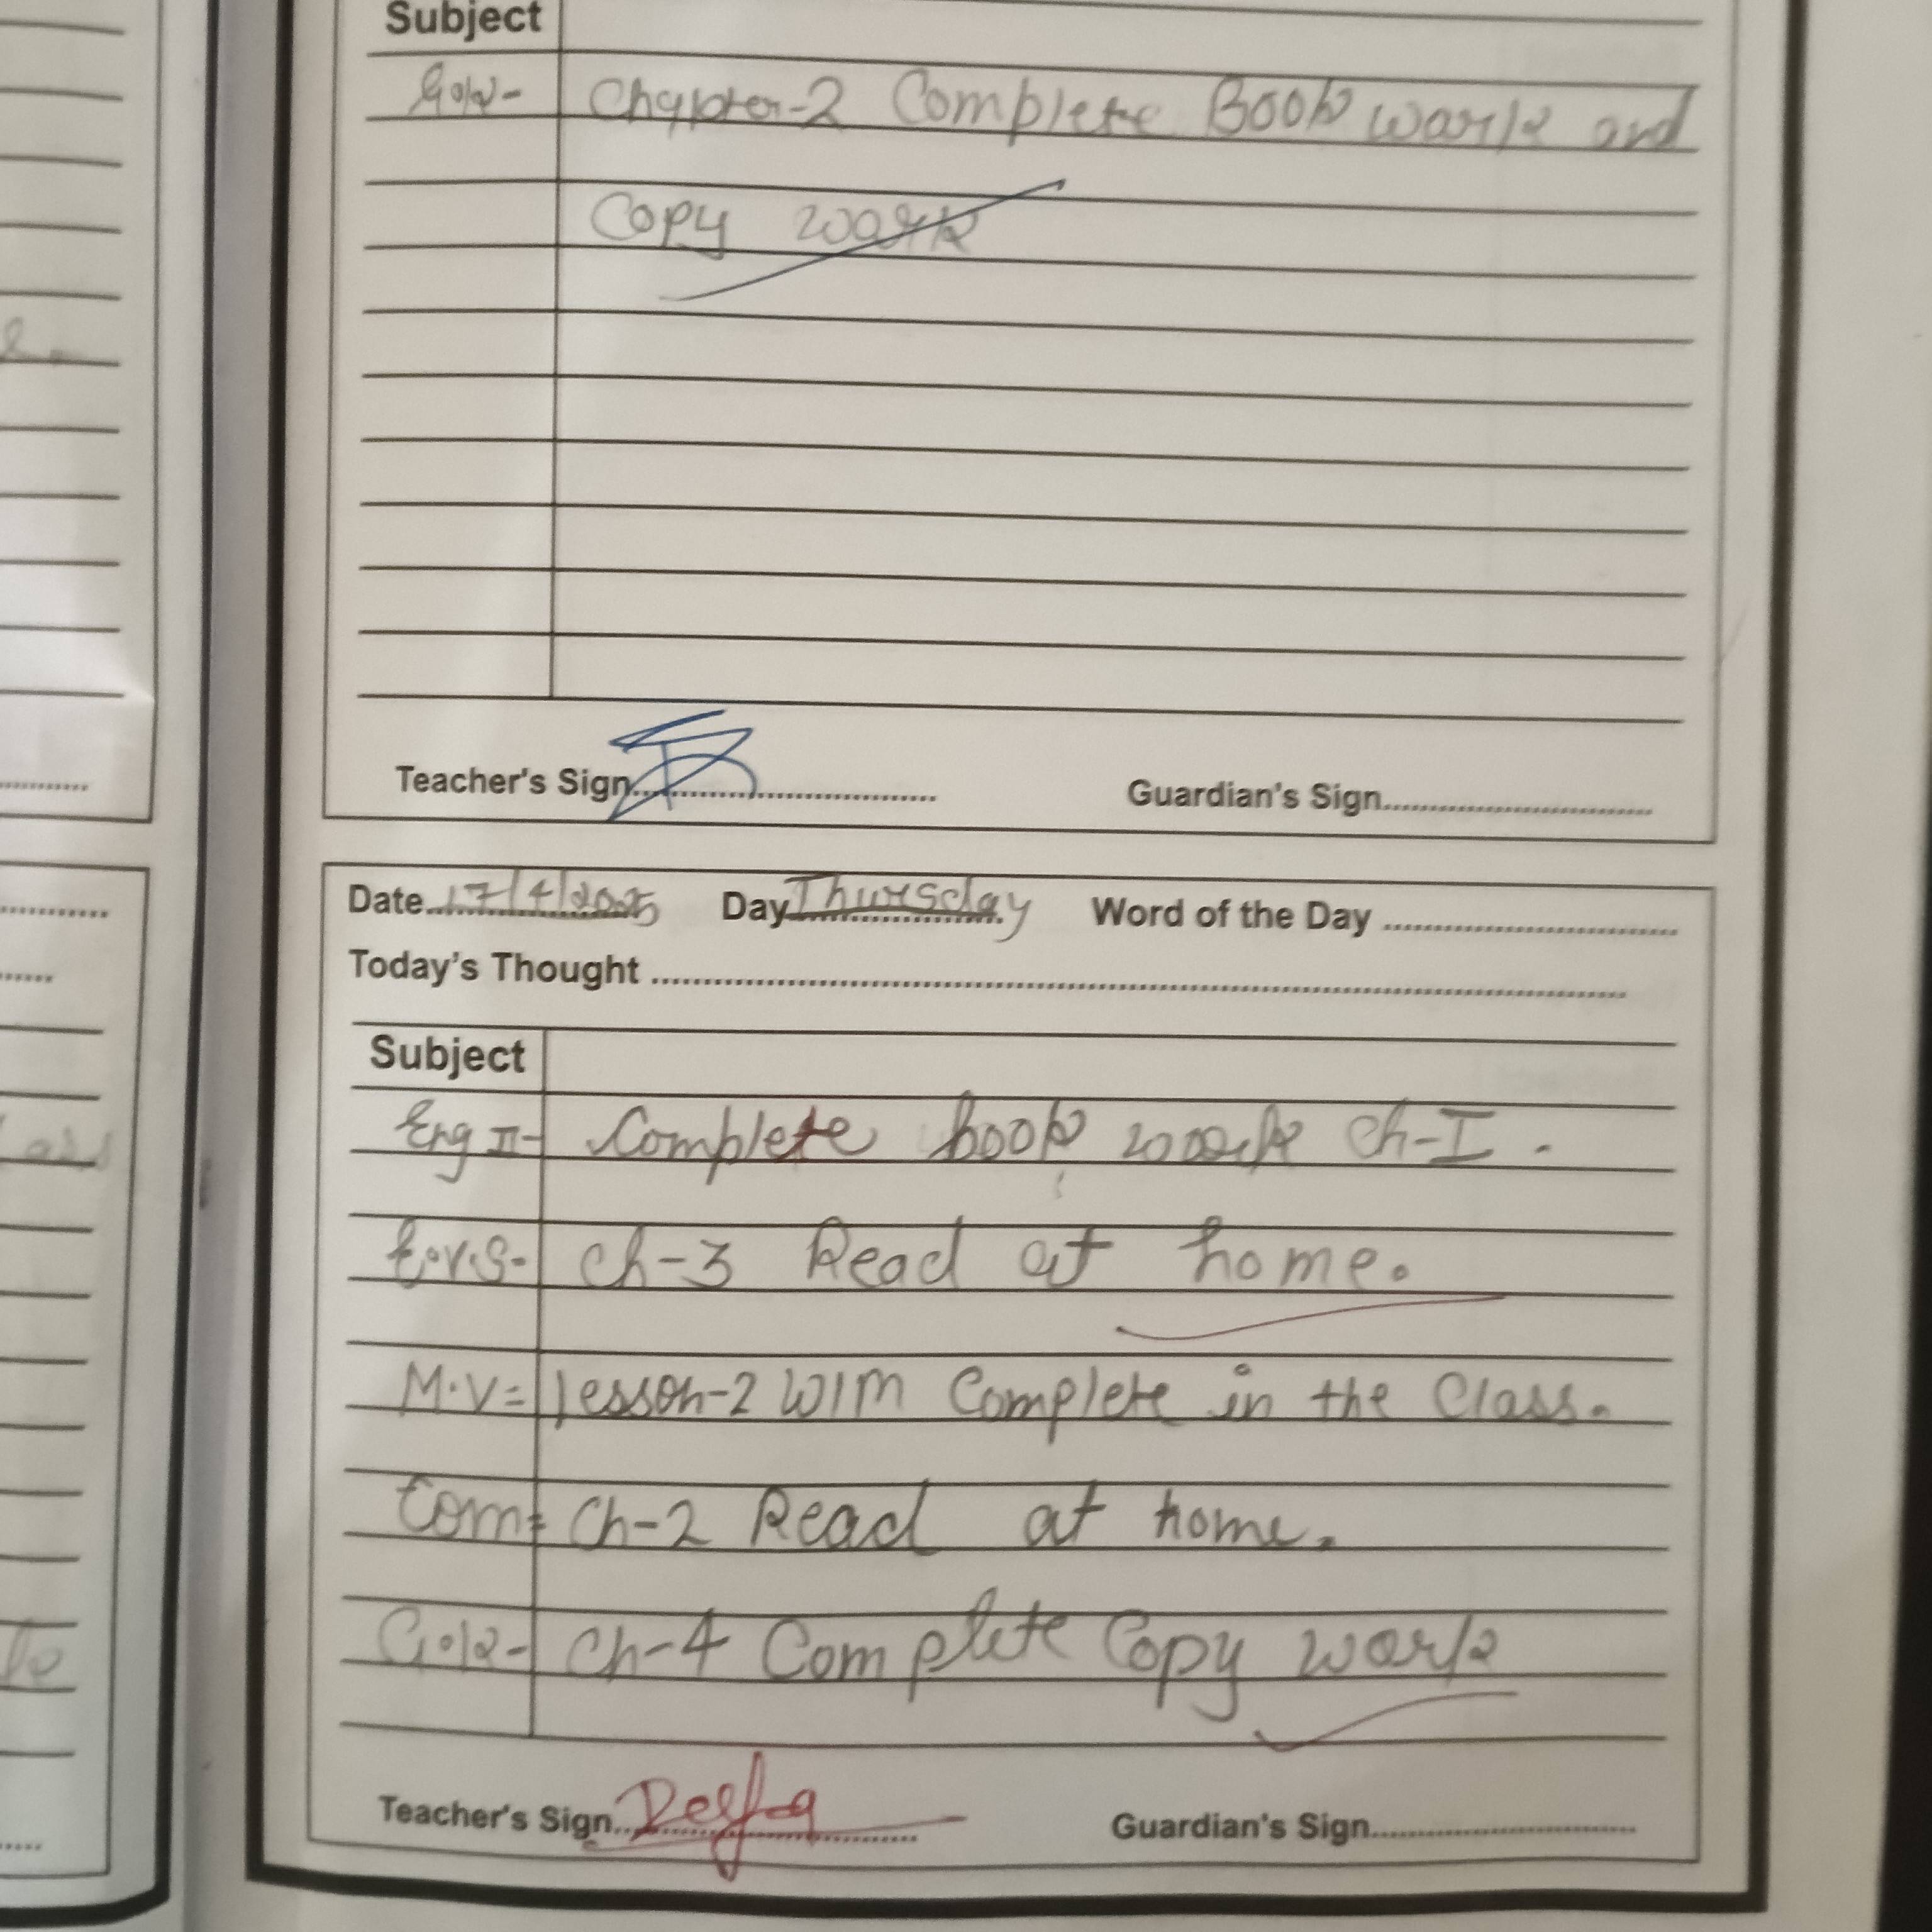 Subject
G.K- Chapter-2 Complete Book work and
Copy work
Teacher's Sign
Guardian's Sign
Date 17/4/2025 Day Thursday Word of the Day
Today's Thought
Subject
Eng II- Complete book work Ch-I.
E.V.S- Ch-3 Read at home.
M.V= lesson-2 W/M Complete in the Class.
Com= Ch-2 Read at home.
G.K- Ch-4 Complete Copy work
Teacher's Sign
Guardian's Sign